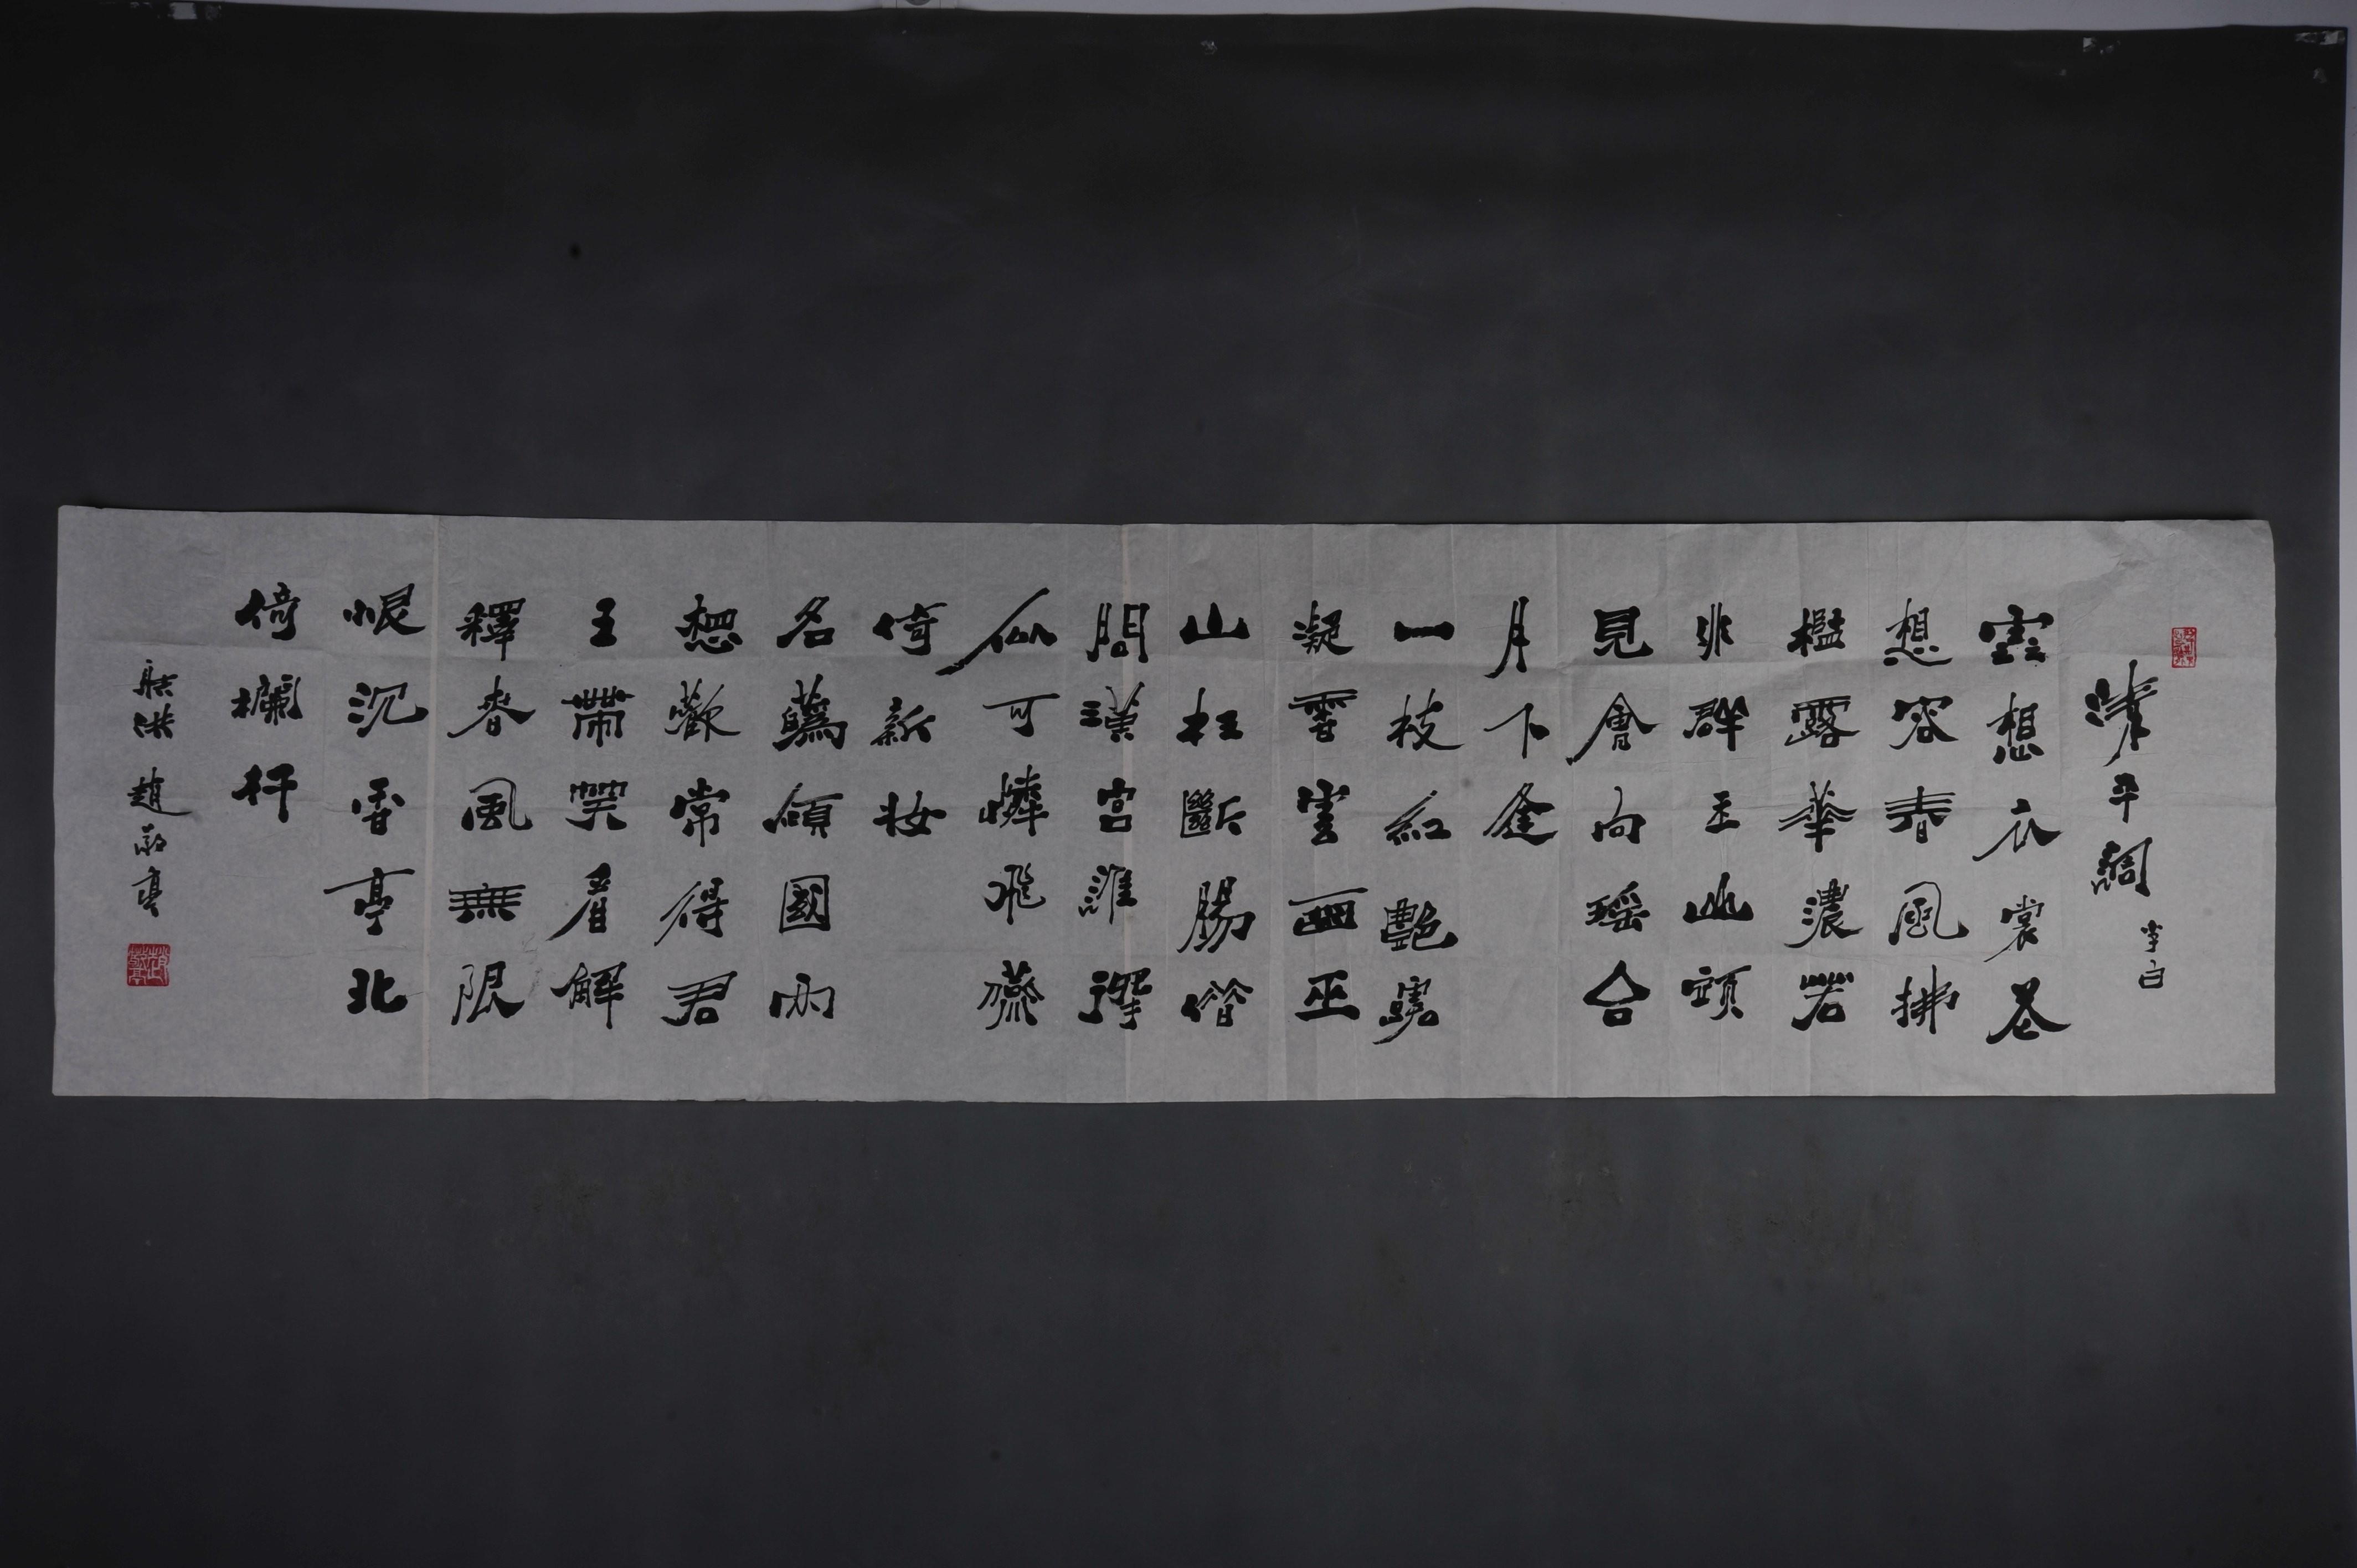 清平調 李白
雲想衣裳花
想容春風拂
檻露華濃若
非群玉山頭
見會向瑤台
月下逢
一枝紅艷露
凝香雲雨巫
山枉斷腸借
問漢宮誰
似可憐飛燕
倚新妝
名蘤傾國兩
想歡常得君
王帶笑看解
釋春風無限
恨沉香亭北
倚欄杆
射洪 趙敬亭
趙敬亭